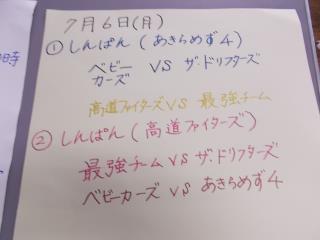 7月6日(月)
①しんぱん(あきらめず4)
ベビーカーズ VS ザ・ドリフターズ
高道ファイターズ VS 最強チーム
②しんぱん(高道ファイターズ)
最強チーム VS ザ・ドリフターズ
ベビーカーズ VS あきらめず4
時